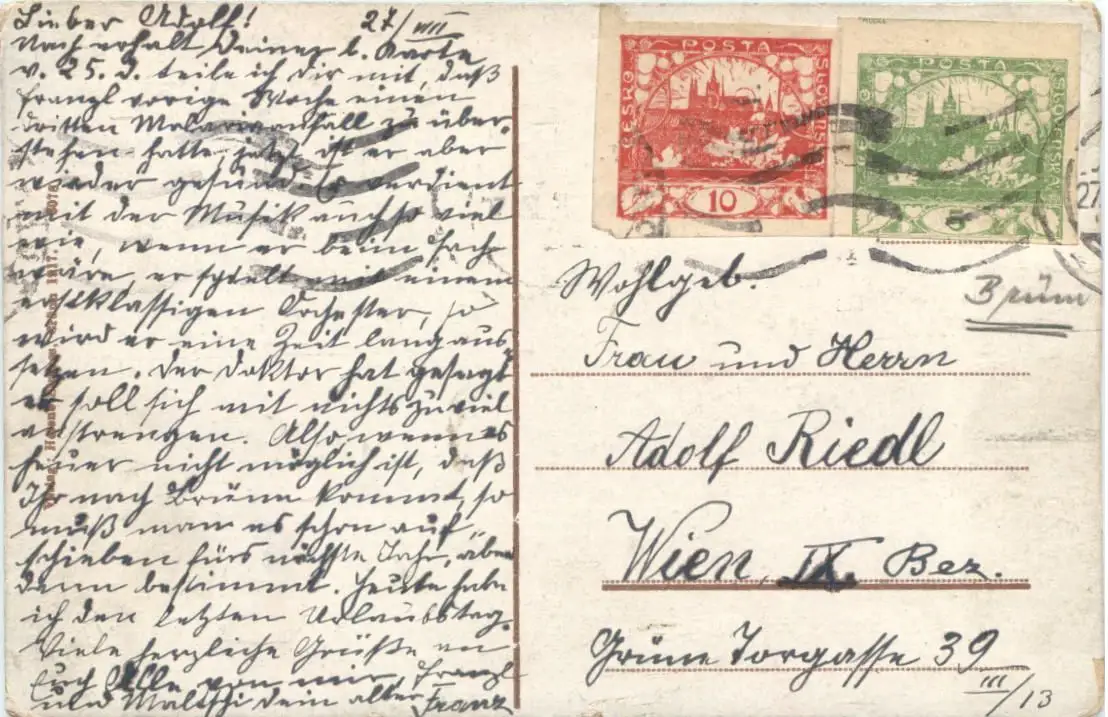 Lieber Adolf! 27/VIII
Nach erhalt Deiner l. Karte
v. 25. d. teile ich Dir mit, daß
Franzl vorige Woche einen
dritten Malariaanfall zu über-
stehen hatte, jetzt ist er aber
wieder gesund. Er verdient
mit der Musik auch so viel
wie, wenn er beim Fach
wäre, er spielt mit einem
erstklassigen Orchester, so
wird er eine Zeit lang aus
setzen. Der Doktor hat gesagt
er soll sich mit nichts zuviel
anstrengen. Also, wenn es
heuer nicht möglich ist, daß
Ihr nach Brünn kommt, so
muß man es schon auf
schieben fürs nächste Jahr, aber
dann bestimmt. Heute habe
ich den letzten Urlaubstag.
Viele herzliche Grüße an
Euch Alle von mir, Franzl
und Maltschi dein alter Franz
POSTA
ČESKO
SLOVENSKÁ
10
POSTA
ČESKO
SLOVENSKÁ
5
27.
Wohlgeb.
Brünn
Frau und Herrn
Adolf Riedl
Wien, IX. Bez.
Grüne Torgasse 39
III/13
1917.